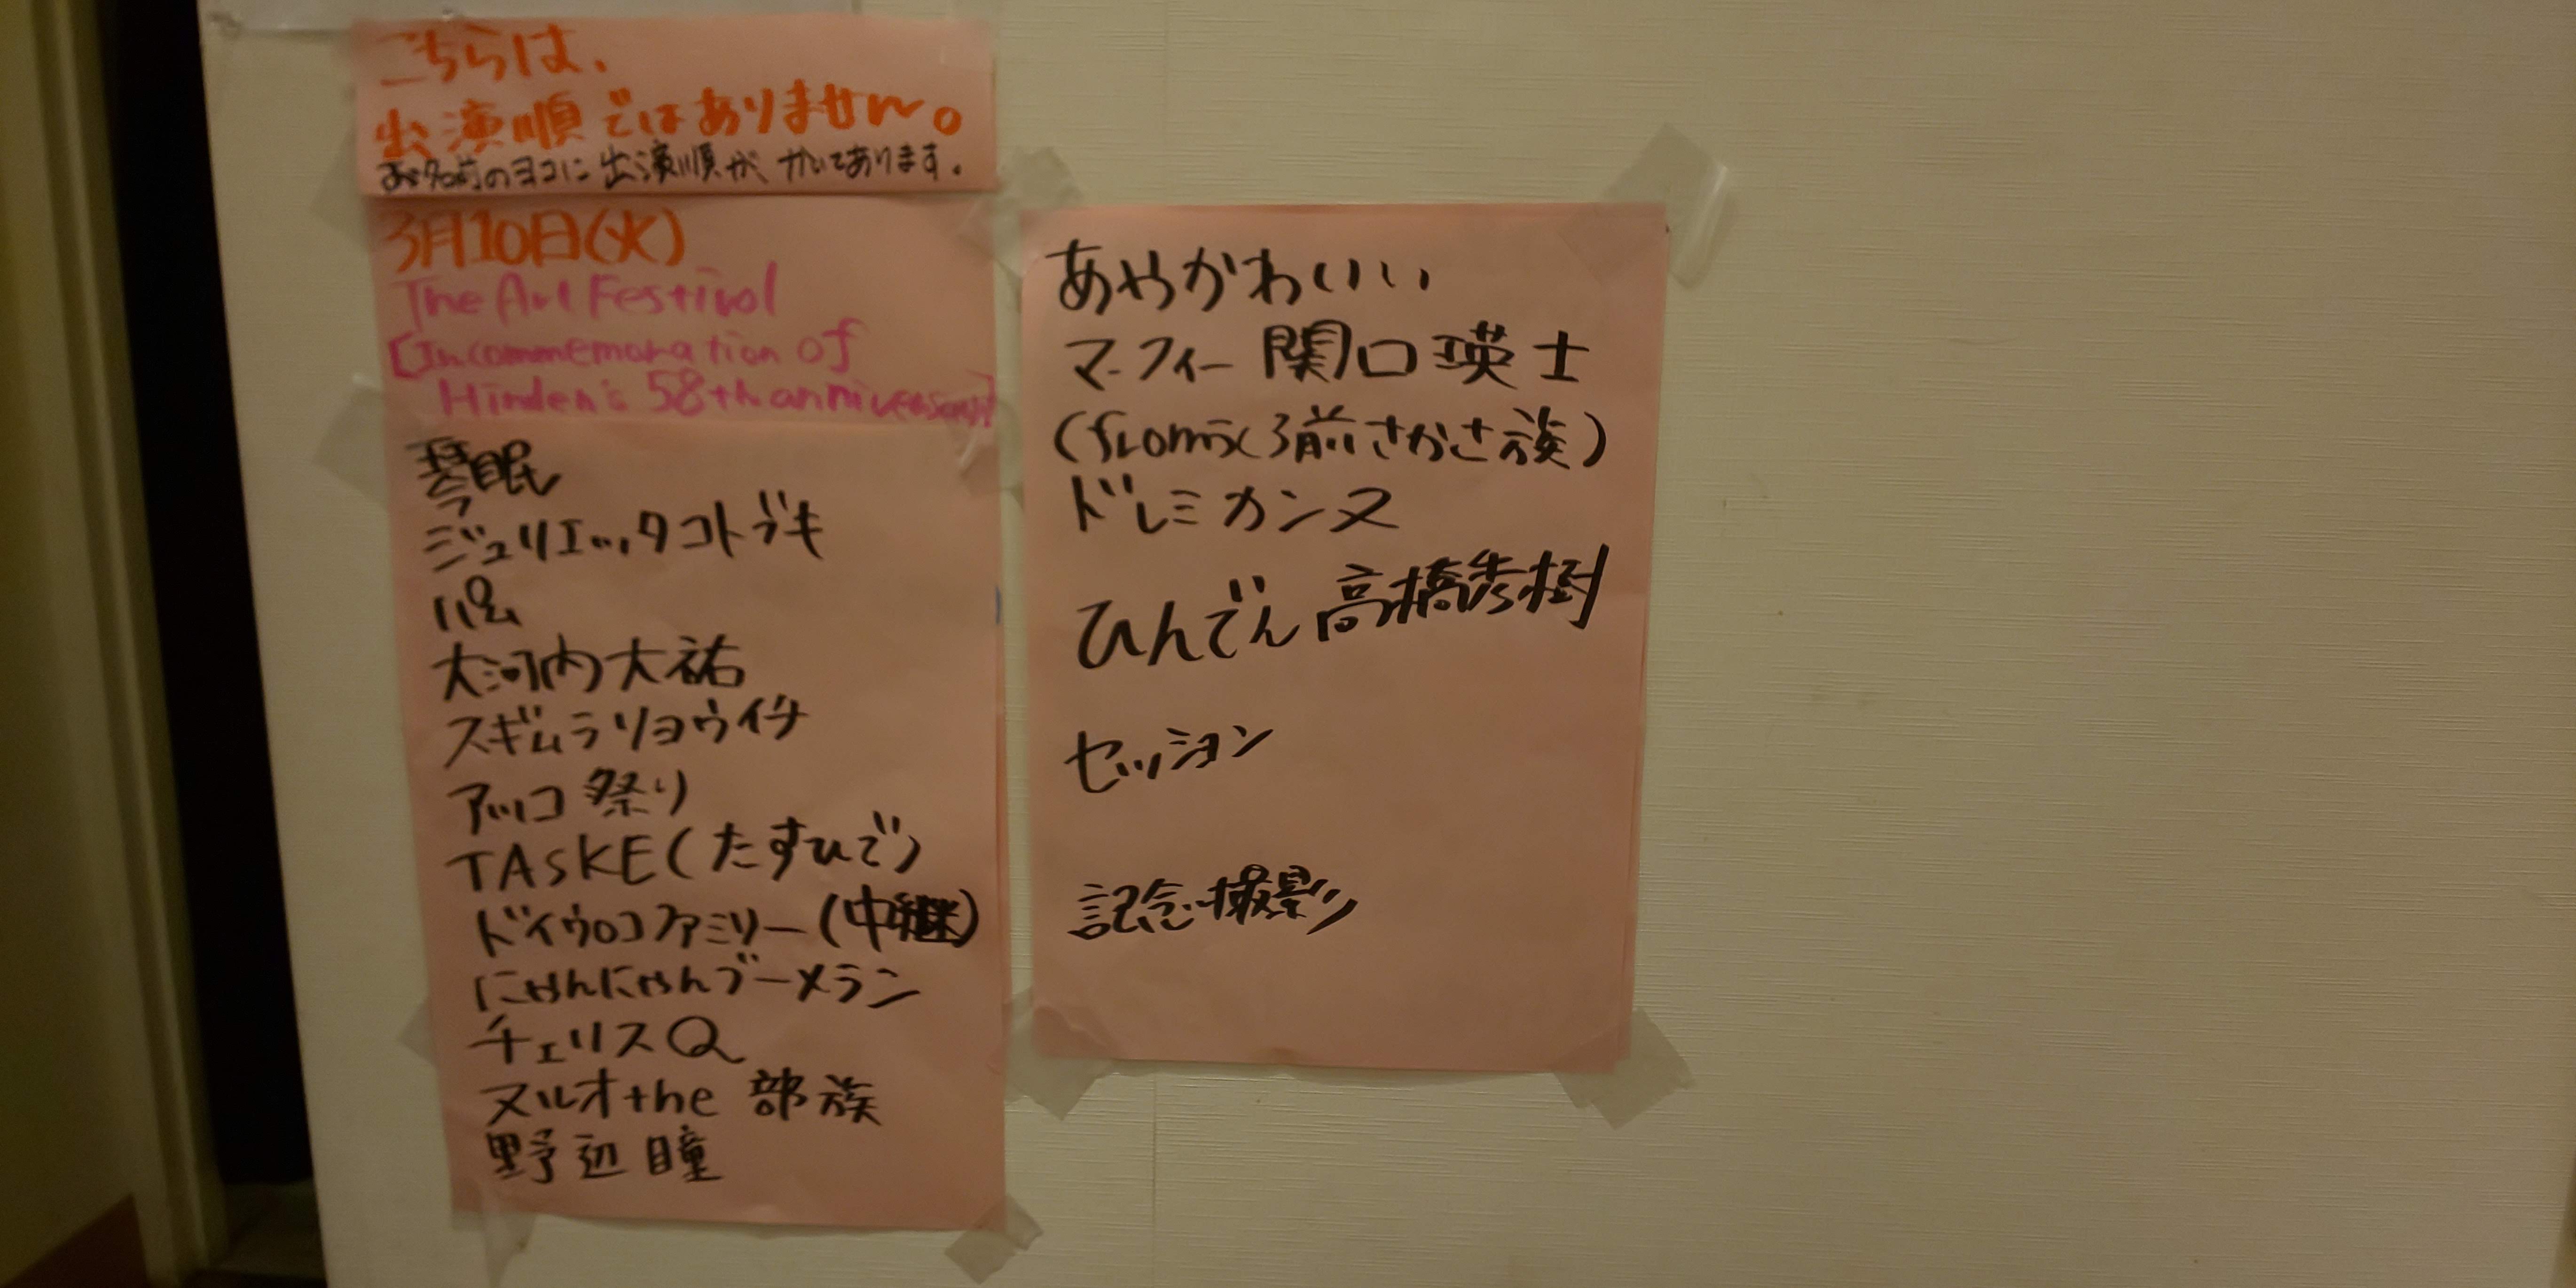 こちらは、
出演順ではありません。
お名前のヨコに出演順が かいてあります。
3月10日(火)
The Art Festival
[In commemoration of
Hinden's 58th anniversary]
琴眠
ジュリエッタコトブキ
パム
大河内大祐
スギムラリョウイチ
アッコ祭り
TASKE(たすひで)
ドイウロコファミリー(中継)
にゃんにゃんブーメラン
チェリスQ
ヌルオthe 部族
野辺瞳
あやかわいい
マーフィー関口瑛士
(from 前さかさ族)
ドレミカンヌ
ひんでん高橋秀樹
セッション
記念撮影